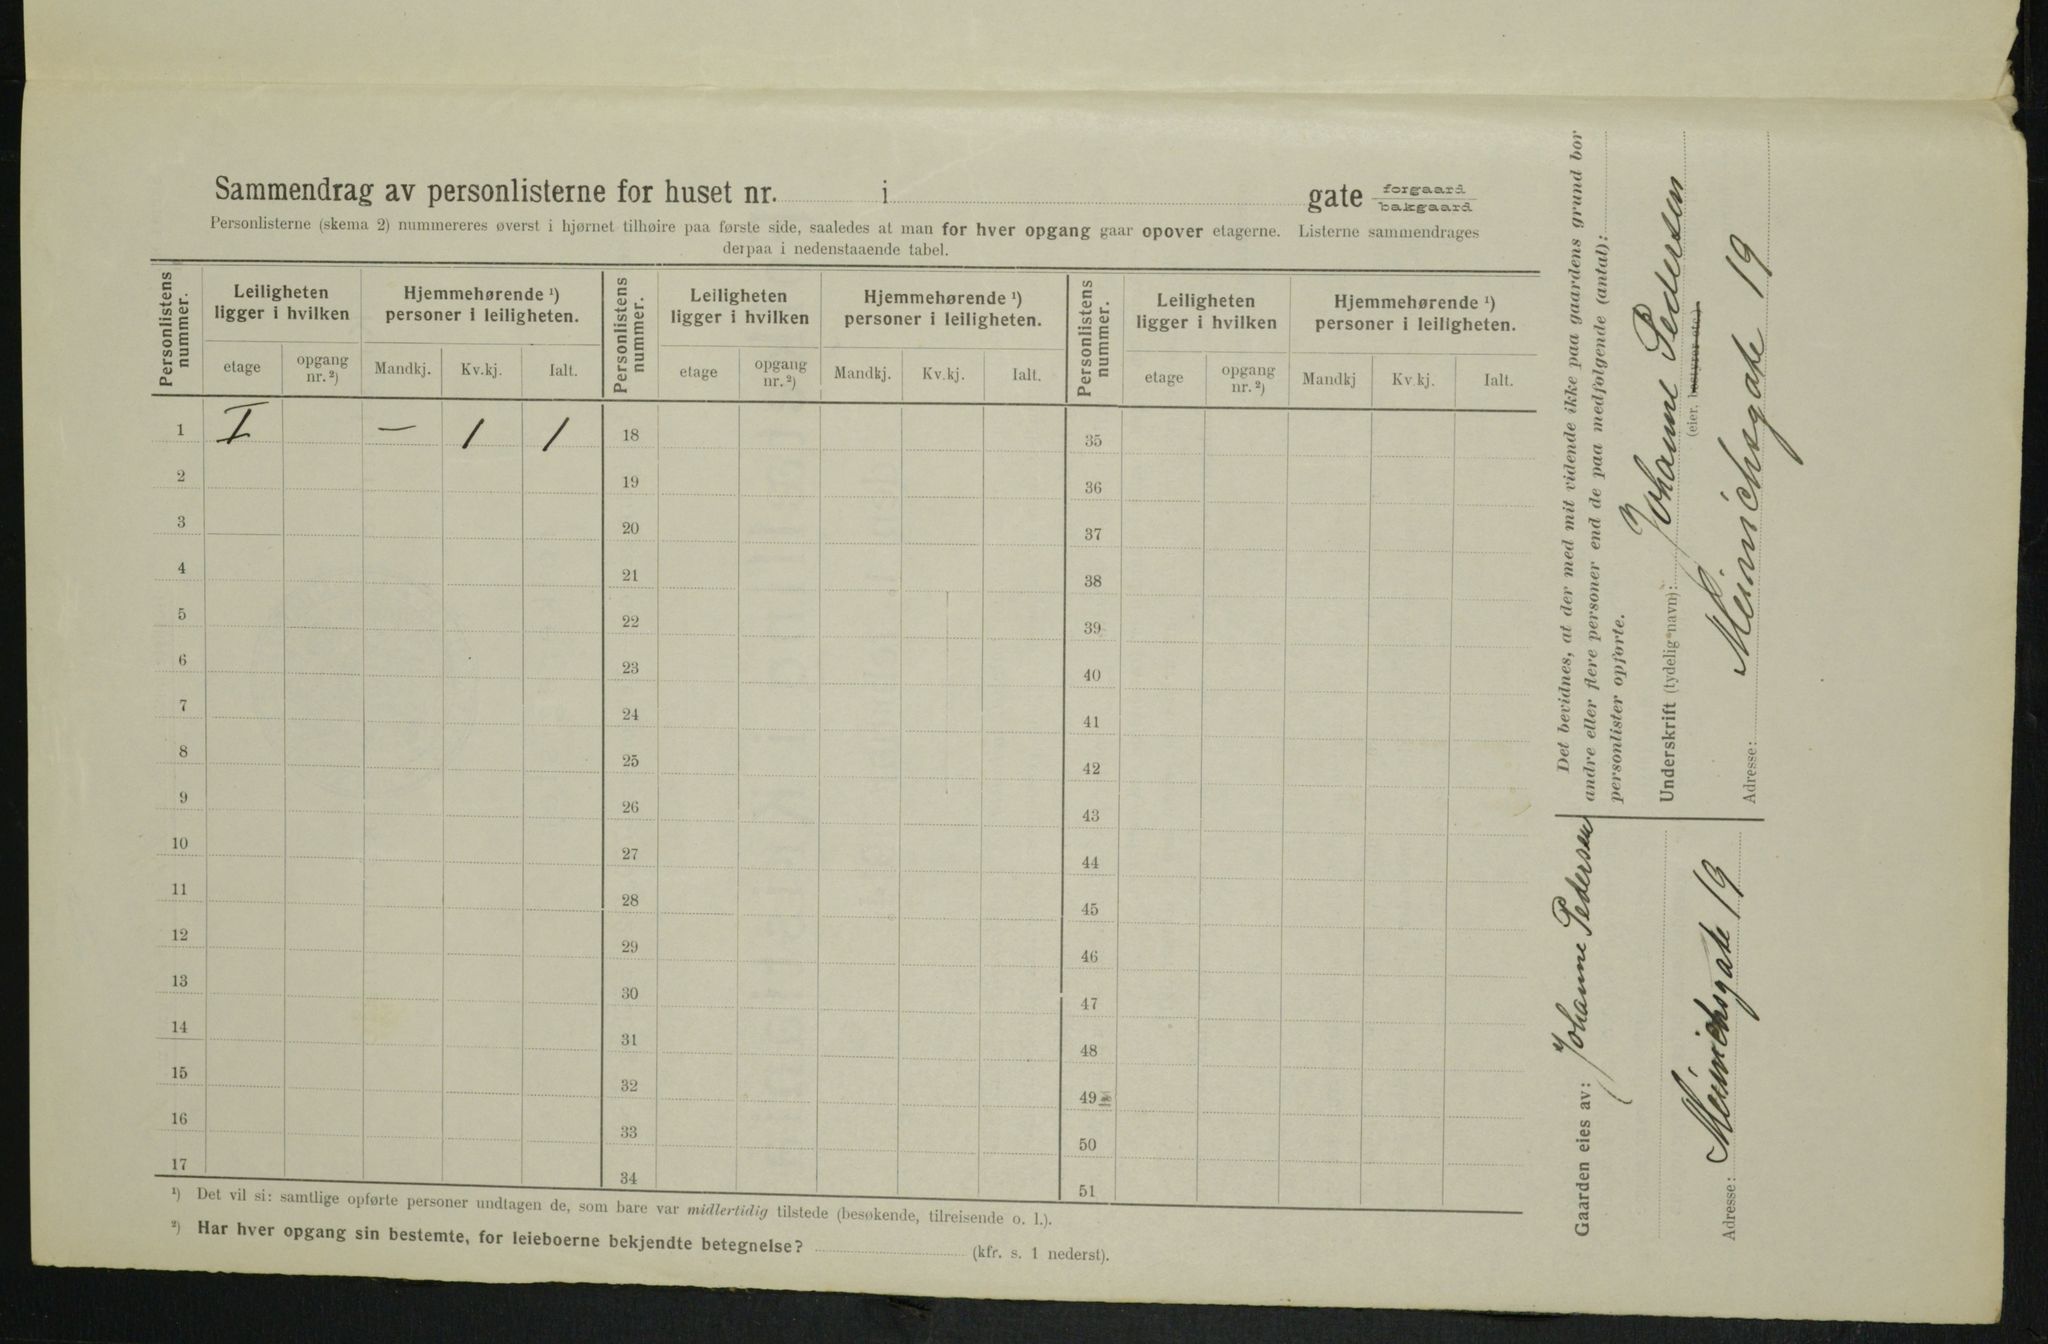 Sammendrag av personlisterne for huset nr. i gate forgaard bakgaard
Personlisterne (skema 2) nummereres øverst i hjørnet tilhøire paa første side, saaledes at man for hver opgang gaar opover etagerne. Listerne sammendrages
derpaa i nedenstaaende tabel.
Personlistens nummer. Leiligheten ligger i hvilken Hjemmehørende ¹) personer i leiligheten. Personlistens nummer. Leiligheten ligger i hvilken Hjemmehørende ¹) personer i leiligheten. Personlistens nummer. Leiligheten ligger i hvilken Hjemmehørende ¹) personer i leiligheten.
etage opgang nr. ²) Mandkj. Kv.kj. Ialt. etage opgang nr. ²) Mandkj. Kv.kj. Ialt. etage opgang nr. ²) Mandkj Kv.kj. Ialt.
1 I — 1 1 18 35
2 19 36
3 20 37
4 21 38
5 22 39
6 23 40
7 24 41
8 25 42
9 26 43
10 27 44
11 28 45
12 29 46
13 30 47
14 31 48
15 32 49
16 33 50
17 34 51
¹) Det vil si: samtlige opførte personer undtagen de, som bare var midlertidig tilstede (besøkende, tilreisende o. l.).
²) Har hver opgang sin bestemte, for leieboerne bekjendte betegnelse? (kfr. s. 1 nederst).
Gaarden eies av: Johanne Pedersen
Adresse: Meinichsgate 19
Det bevidnes, at der med mit vidende ikke paa gaardens grund bor
andre eller flere personer end de paa medfølgende (antal):
personlister opførte.
Underskrift (tydelig navn): Johanne Pedersen
(eier, bestyrer etc.)
Adresse: Meinichsgate 19